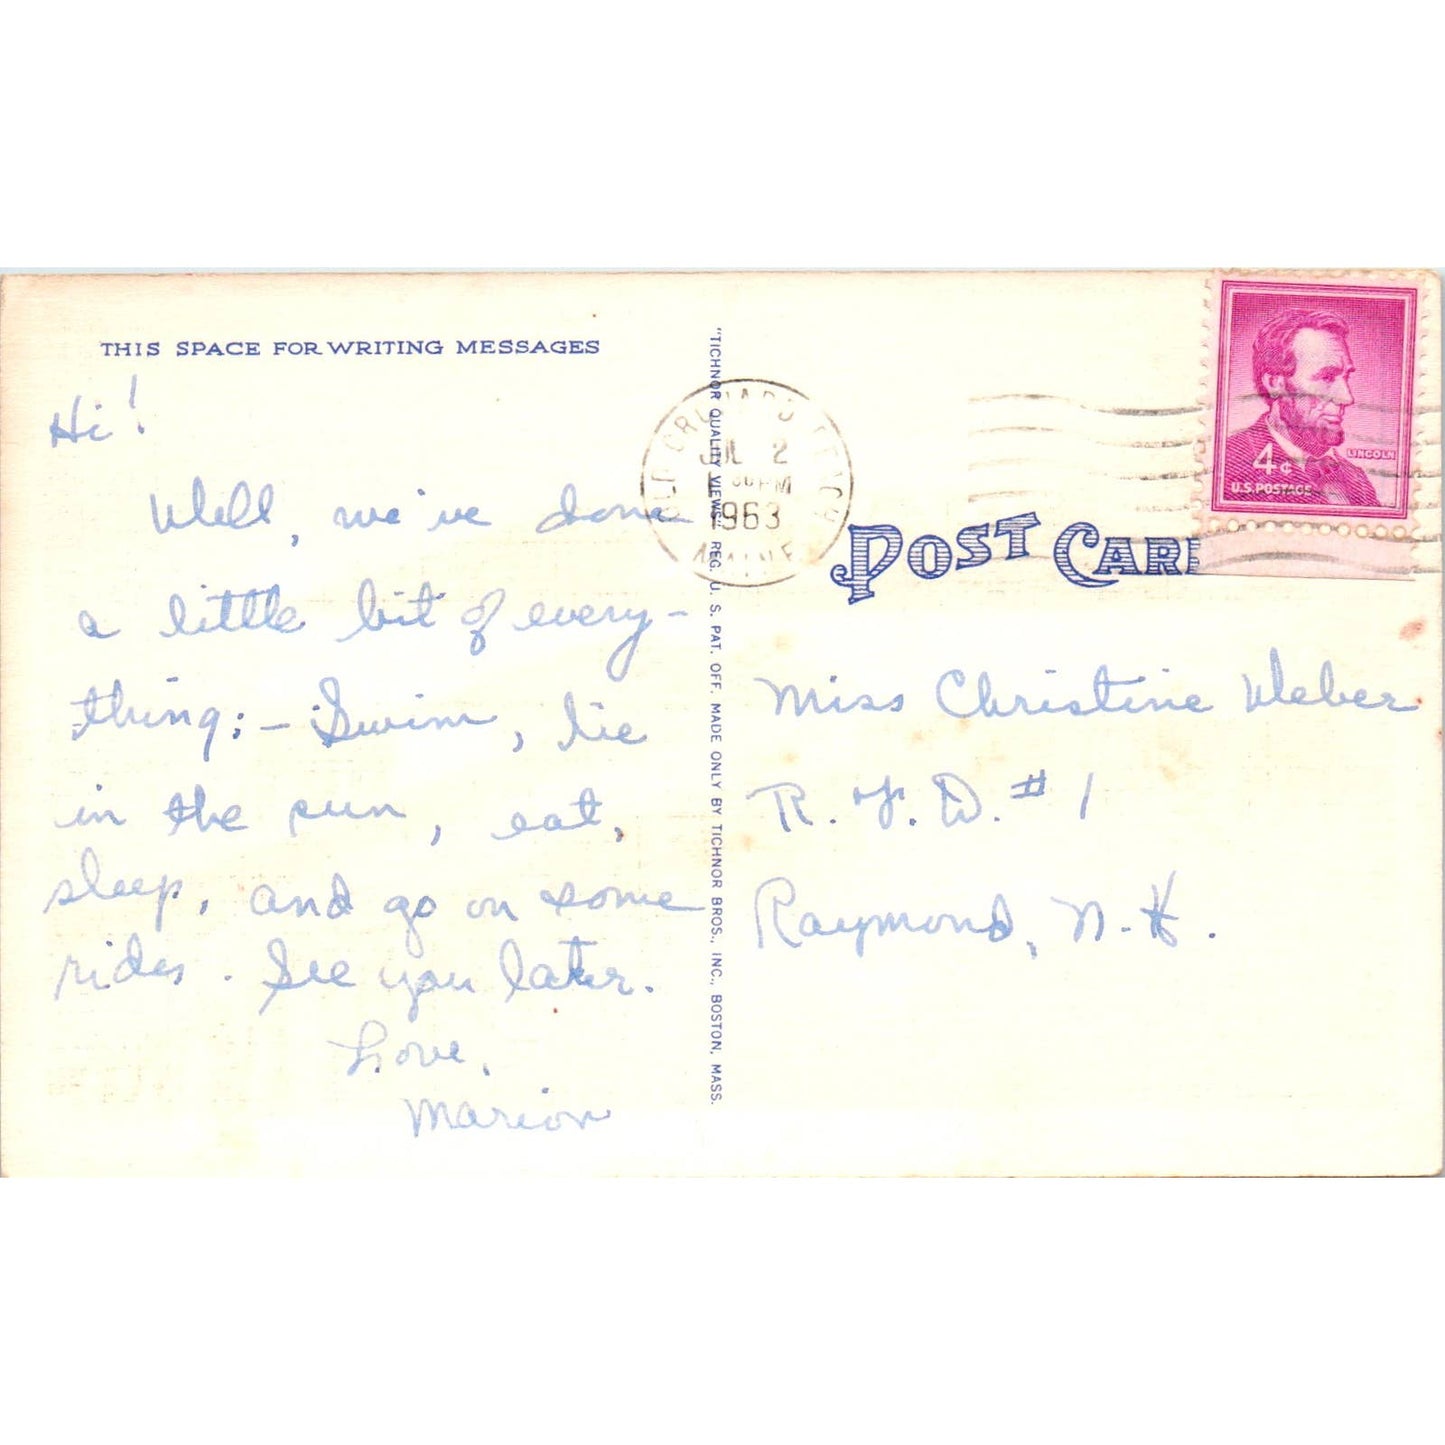 THIS SPACE FOR WRITING MESSAGES
Hi!
Well, we've done
a little bit of every-
thing; - Swim, lie
in the sun, eat,
sleep, and go on some
rides. See you later.
Love,
Marion
"TICHNOR QUALITY VIEWS" REG. U. S. PAT. OFF. MADE ONLY BY TICHNOR BROS., INC., BOSTON, MASS.
OLD ORCHARD BEACH
JUL 2
PM
1963
MAINE
4¢
LINCOLN
U.S. POSTAGE
POST CAR
Miss Christine Weber
R. F. D. #1
Raymond, N. H.